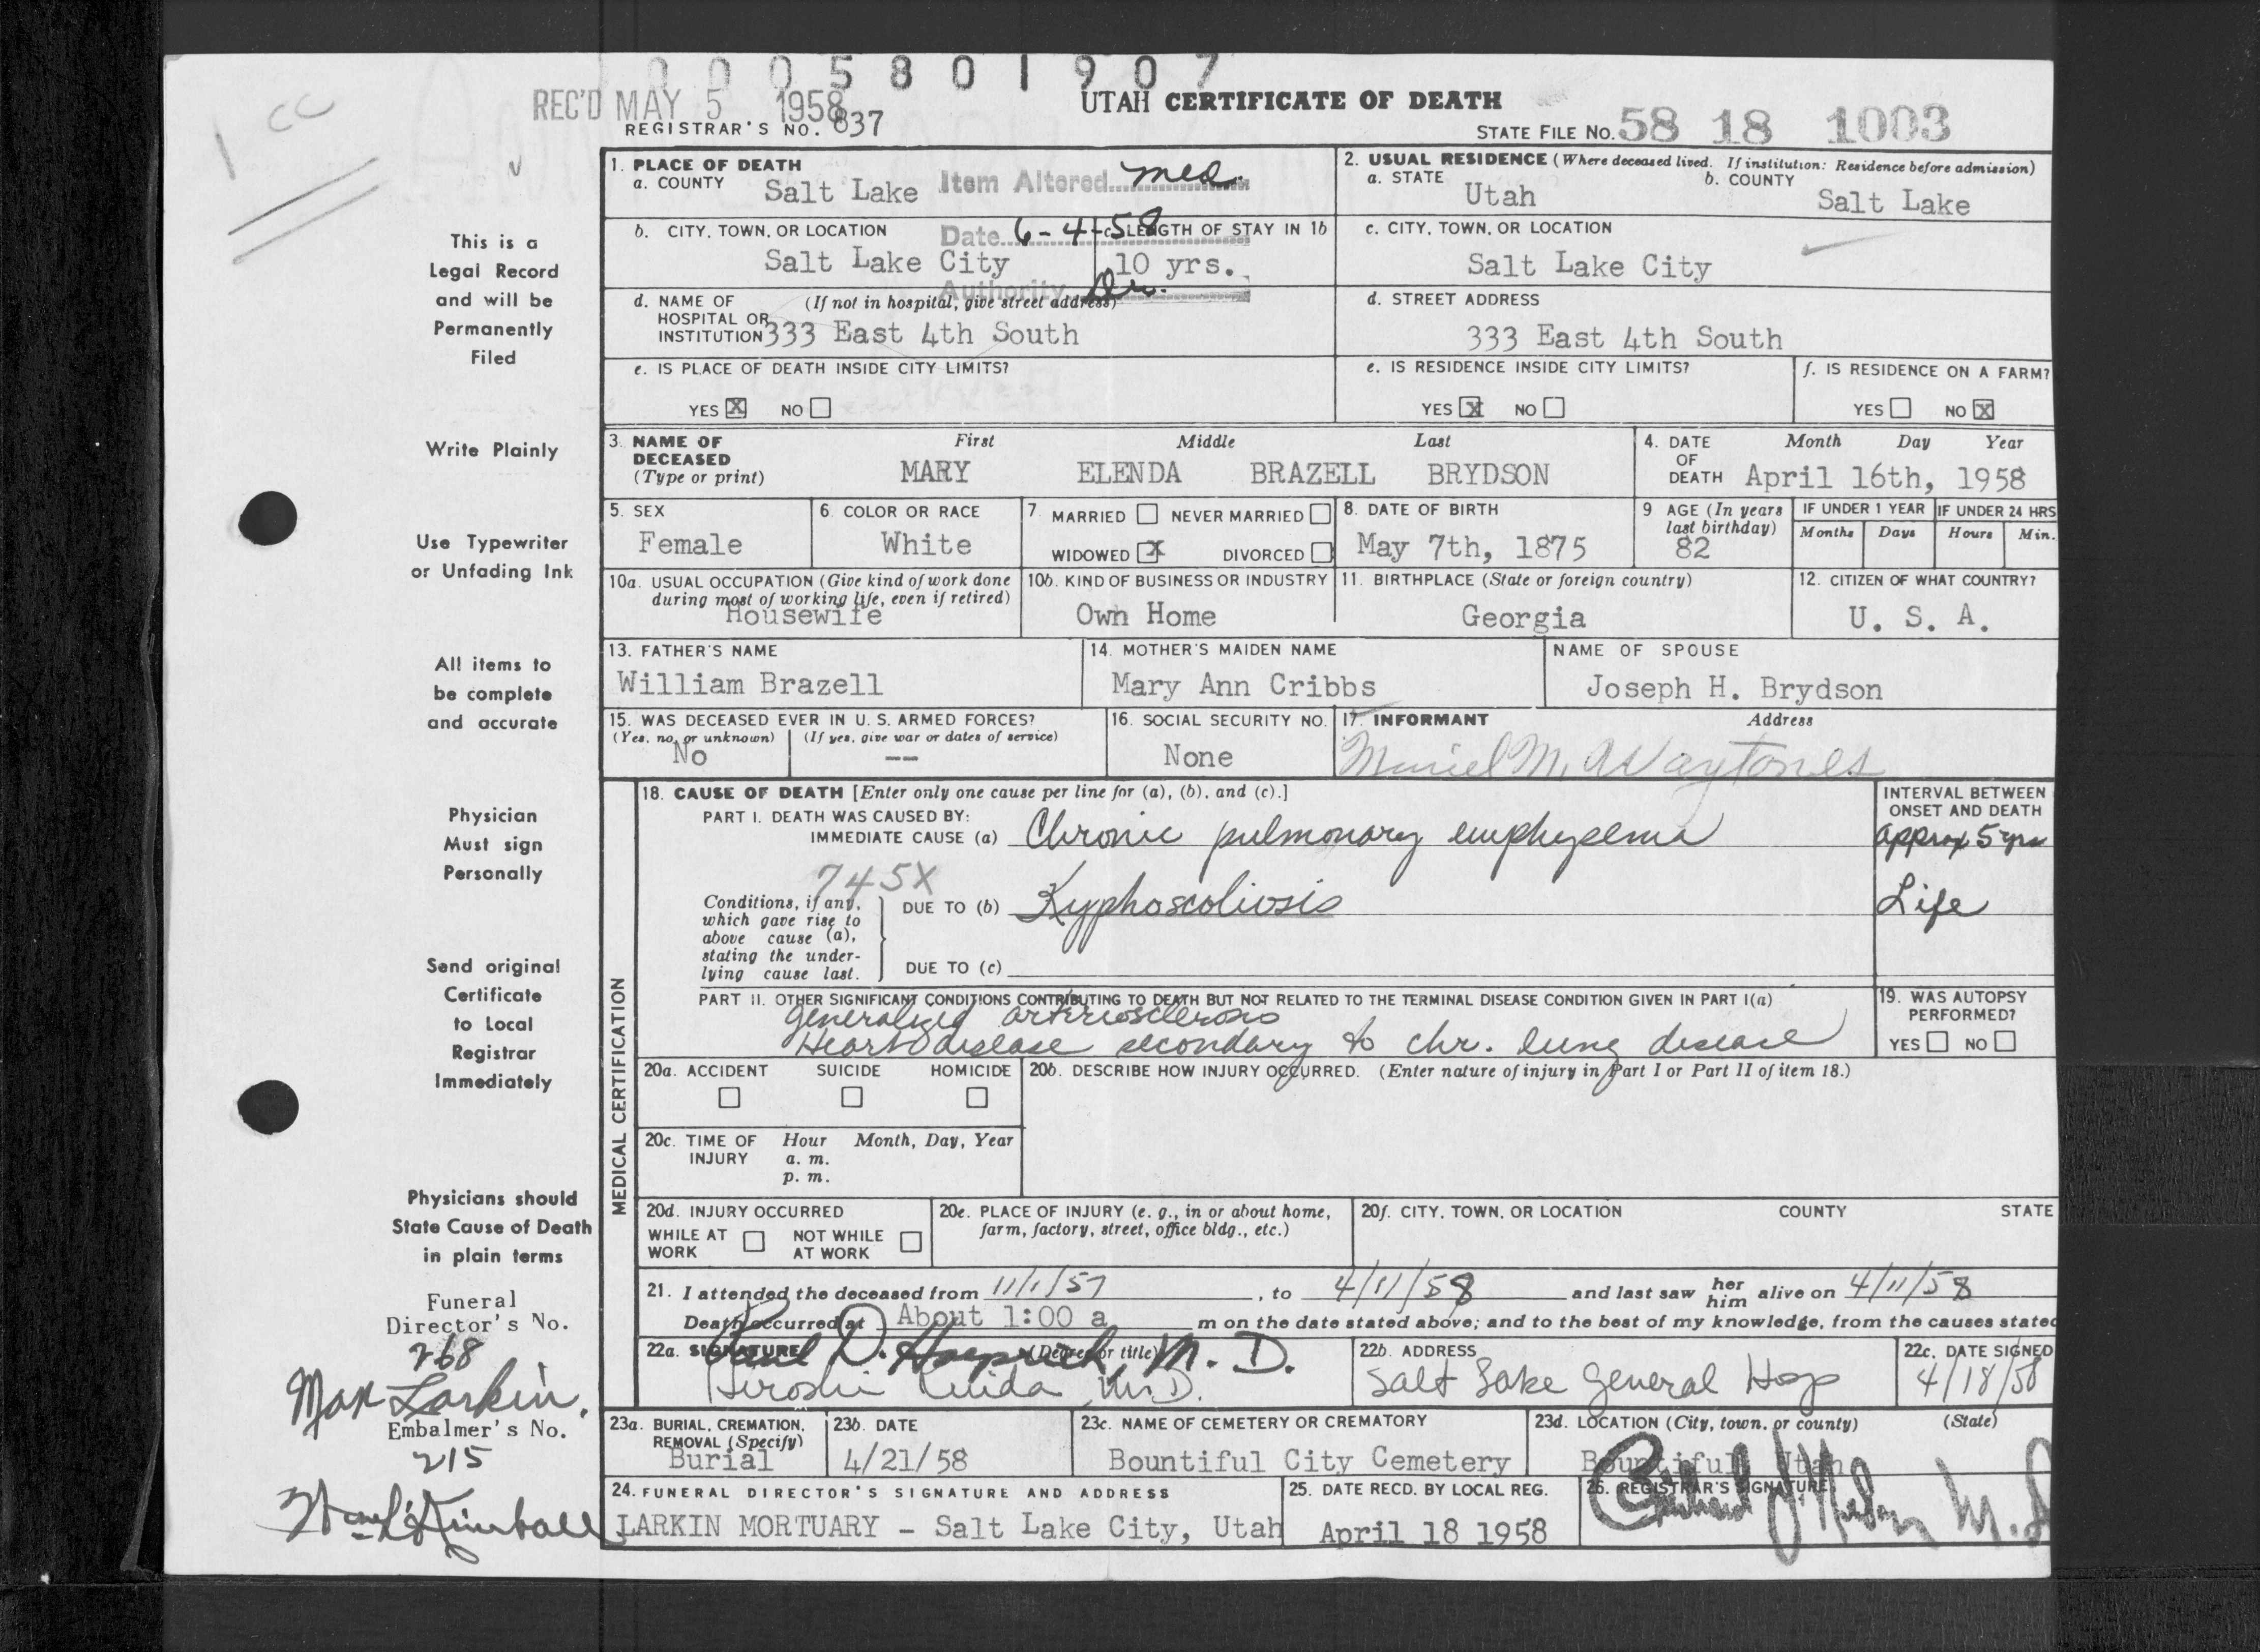 0005801907
REC'D MAY 5 1958
UTAH CERTIFICATE OF DEATH
REGISTRAR'S NO. 837
STATE FILE NO. 58 18 1003
1 CC
This is a
Legal Record
and will be
Permanently
Filed
Write Plainly
Use Typewriter
or Unfading Ink
All items to
be complete
and accurate
Physician
Must sign
Personally
Send original
Certificate
to Local
Registrar
Immediately
Physicians should
State Cause of Death
in plain terms
Funeral
Director's No.
268
Max Larkin.
Embalmer's No.
215
Kimball
1. PLACE OF DEATH
a. COUNTY Salt Lake
Item Altered med.
Date 6-4-58
Authority Dr.
2. USUAL RESIDENCE (Where deceased lived. If institution: Residence before admission)
a. STATE Utah
b. COUNTY Salt Lake
b. CITY, TOWN, OR LOCATION Salt Lake City
c. LENGTH OF STAY IN 1b 10 yrs.
c. CITY, TOWN, OR LOCATION Salt Lake City
d. NAME OF HOSPITAL OR INSTITUTION (If not in hospital, give street address) 333 East 4th South
d. STREET ADDRESS 333 East 4th South
e. IS PLACE OF DEATH INSIDE CITY LIMITS?
YES X NO
e. IS RESIDENCE INSIDE CITY LIMITS?
YES X NO
f. IS RESIDENCE ON A FARM?
YES NO X
3. NAME OF DECEASED (Type or print) First Middle Last
MARY ELENDA BRAZELL BRYDSON
4. DATE OF DEATH Month Day Year
April 16th, 1958
5. SEX Female
6. COLOR OR RACE White
7. MARRIED NEVER MARRIED
WIDOWED X DIVORCED
8. DATE OF BIRTH May 7th, 1875
9 AGE (In years last birthday) 82
IF UNDER 1 YEAR Months Days
IF UNDER 24 HRS Hours Min.
10a. USUAL OCCUPATION (Give kind of work done during most of working life, even if retired) Housewife
10b. KIND OF BUSINESS OR INDUSTRY Own Home
11. BIRTHPLACE (State or foreign country) Georgia
12. CITIZEN OF WHAT COUNTRY? U. S. A.
13. FATHER'S NAME William Brazell
14. MOTHER'S MAIDEN NAME Mary Ann Cribbs
NAME OF SPOUSE Joseph H. Brydson
15. WAS DECEASED EVER IN U. S. ARMED FORCES?
(Yes, no, or unknown) No
(If yes, give war or dates of service) --
16. SOCIAL SECURITY NO. None
17. INFORMANT Address
M.
MEDICAL CERTIFICATION
18. CAUSE OF DEATH [Enter only one cause per line for (a), (b), and (c).]
INTERVAL BETWEEN ONSET AND DEATH
PART I. DEATH WAS CAUSED BY:
IMMEDIATE CAUSE (a) Chronic pulmonary emphysema approx 5 yrs
745X
Conditions, if any, which gave rise to above cause (a), stating the underlying cause last.
DUE TO (b) Kyphoscoliosis Life
DUE TO (c)
PART II. OTHER SIGNIFICANT CONDITIONS CONTRIBUTING TO DEATH BUT NOT RELATED TO THE TERMINAL DISEASE CONDITION GIVEN IN PART I(a)
generalized arteriosclerosis
Heart disease secondary to chr. lung disease
19. WAS AUTOPSY PERFORMED?
YES NO
20a. ACCIDENT SUICIDE HOMICIDE
20b. DESCRIBE HOW INJURY OCCURRED. (Enter nature of injury in Part I or Part II of item 18.)
20c. TIME OF INJURY Hour Month, Day, Year
a. m.
p. m.
20d. INJURY OCCURRED
WHILE AT WORK NOT WHILE AT WORK
20e. PLACE OF INJURY (e. g., in or about home, farm, factory, street, office bldg., etc.)
20f. CITY, TOWN, OR LOCATION COUNTY STATE
21. I attended the deceased from 11/1/57, to 4/11/58 and last saw her him alive on 4/11/58
Death occurred at About 1:00 a m on the date stated above; and to the best of my knowledge, from the causes stated
22a. SIGNATURE (Degree or title)
Paul D. M. D.
Hiroshi Kuida M.D.
22b. ADDRESS Salt Lake General Hosp
22c. DATE SIGNED 4/18/58
23a. BURIAL, CREMATION, REMOVAL (Specify) Burial
23b. DATE 4/21/58
23c. NAME OF CEMETERY OR CREMATORY Bountiful City Cemetery
23d. LOCATION (City, town, or county) (State) Bountiful Utah
24. FUNERAL DIRECTOR'S SIGNATURE AND ADDRESS
LARKIN MORTUARY - Salt Lake City, Utah
25. DATE RECD. BY LOCAL REG. April 18 1958
26. REGISTRAR'S SIGNATURE
M.D